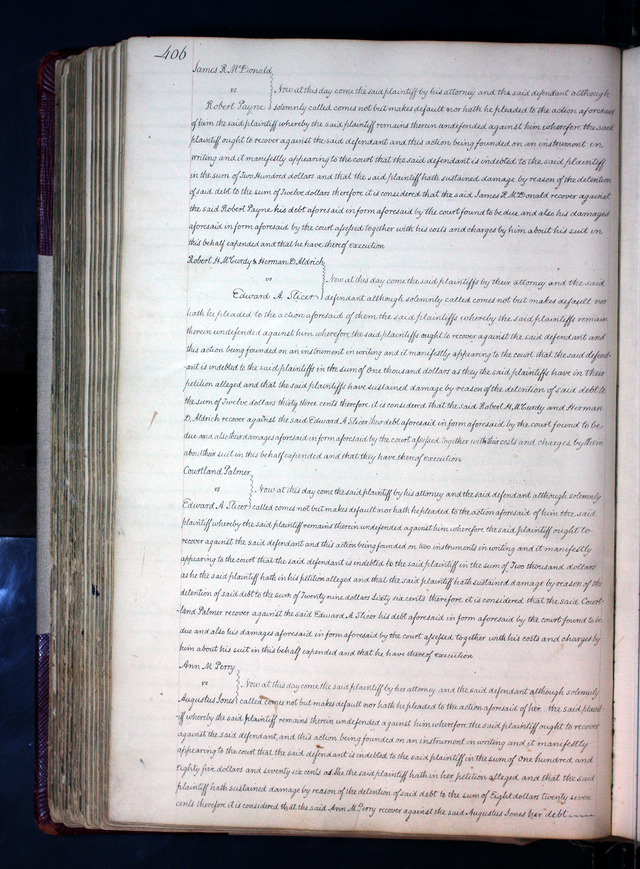 406
James R. McDonald
vs
Robert Payne
Now at this day come the said plaintiff by his attorney and the said defendant although
solemnly called comes not but makes default nor hath he pleaded to the action aforesaid
of him the said plaintiff whereby the said plaintiff remains therein undefended against him wherefore the said
plaintiff ought to recover against the said defendant and this action being founded on an instrument in
writing and it manifestly appearing to the court that the said defendant is indebted to the said plaintiff
in the sum of Two Hundred dollars and that the said plaintiff hath sustained damage by reason of the detention
of said debt to the sum of Twelve dollars therefore it is considered that the said James R. McDonald recover against
the said Robert Payne his debt aforesaid in form aforesaid by the court found to be due and also his damages
aforesaid in form aforesaid by the court assessed together with his costs and charges by him about his suit in
this behalf expended and that he have thereof execution
Robert H. McCurdy & Herman D. Aldrich
vs
Edward A. Slicer
Now at this day come the said plaintiffs by their attorney and the said
defendant although solemnly called comes not but makes default nor
hath he pleaded to the action aforesaid of them the said plaintiffs whereby the said plaintiffs remain
therein undefended against him wherefore the said plaintiffs ought to recover against the said defendant and
this action being founded on an instrument in writing and it manifestly appearing to the court that the said defend-
ant is indebted to the said plaintiffs in the sum of One thousand dollars as they the said plaintiffs have in their
petition alleged and that the said plaintiffs have sustained damage by reason of the detention of said debt to
the sum of Twelve dollars thirty three cents therefore it is considered that the said Robert H. McCurdy and Herman
D. Aldrich recover against the said Edward A. Slicer their debt aforesaid in form aforesaid by the court found to be
due and also their damages aforesaid in form aforesaid by the court assessed together with their costs and charges by them
about their suit in this behalf expended and that they have thereof execution
Courtland Palmer
vs
Edward A. Slicer
Now at this day come the said plaintiff by his attorney and the said defendant although solemnly
called comes not but makes default nor hath he pleaded to the action aforesaid of him the said
plaintiff whereby the said plaintiff remains therein undefended against him wherefore the said plaintiff ought to
recover against the said defendant and this action being founded on two instruments in writing and it manifestly
appearing to the court that the said defendant is indebted to the said plaintiff in the sum of Two thousand dollars
as he the said plaintiff hath in his petition alleged and that the said plaintiff hath sustained damage by reason of the
detention of said debt to the sum of Twenty nine dollars Sixty six cents therefore it is considered that the said Court-
-land Palmer recover against the said Edward A. Slicer his debt aforesaid in form aforesaid by the court found to be
due and also his damages aforesaid in form aforesaid by the court assessed together with his costs and charges by
him about his suit in this behalf expended and that he have thereof execution
Ann M. Perry
vs
Augustus Jones
Now at this day come the said plaintiff by her attorney and the said defendant although solemnly
called comes not but makes default nor hath he pleaded to the action aforesaid of her the said plaint-
iff whereby the said plaintiff remains therein undefended against him wherefore the said plaintiff ought to recover
against the said defendant, and this action being founded on an instrument in writing and it manifestly
appearing to the court that the said defendant is indebted to the said plaintiff in the sum of one hundred and
Eighty five dollars and seventy six cents as she the said plaintiff hath in her petition alleged and that the said
plaintiff hath sustained damage by reason of the detention of said debt to the sum of Eight dollars twenty seven
cents therefore it is considered that the said Ann M. Perry recover against the said Augustus Jones her debt